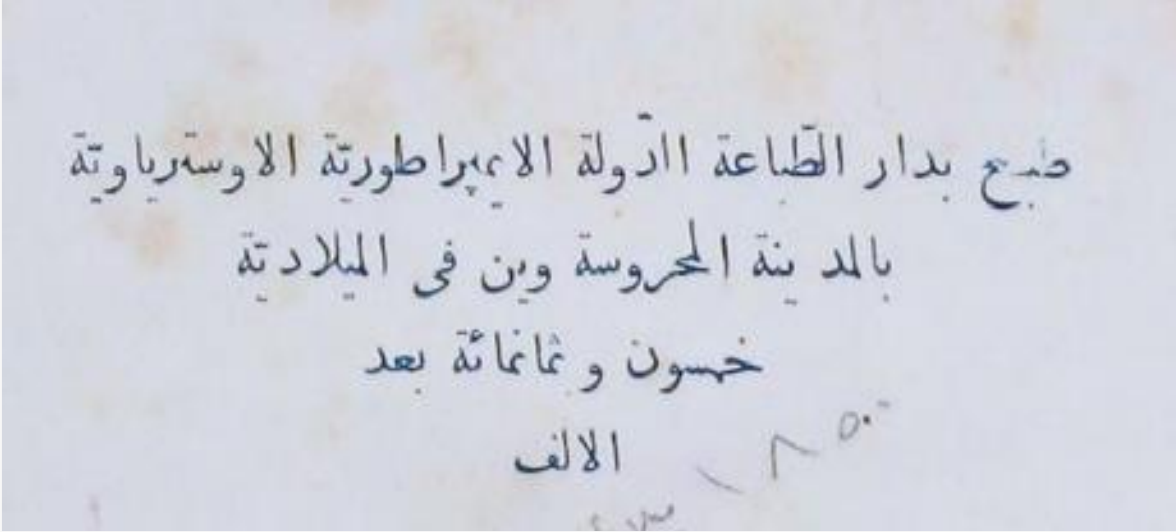 طبع بدار الطّباعة الدّولة الايمپراطوريّة الاوستریاویّة
بالمدينة المحروسة وين فى الميلاديّة
خمسون و ثمانمائة بعد
الالف
١٨٥٠